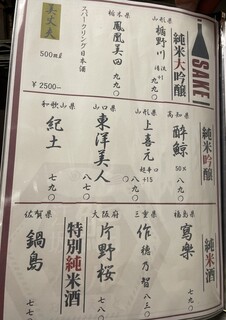 SAKE
純米大吟醸
山形県
楯野川
九九〇
栃木県
鳳凰美田
九九〇
スパークリング日本酒
美丈夫
500㎖
¥2500−
純米吟醸
高知県
酔鯨
八九〇
山形県
上喜元
超辛口
+15
山口県
東洋美人
八七〇
和歌山県
紀土
七九〇
純米酒
福島県
寫樂
三重県
作 穂乃智
八三〇
大阪府
片野桜
特別純米酒
佐賀県
鍋島